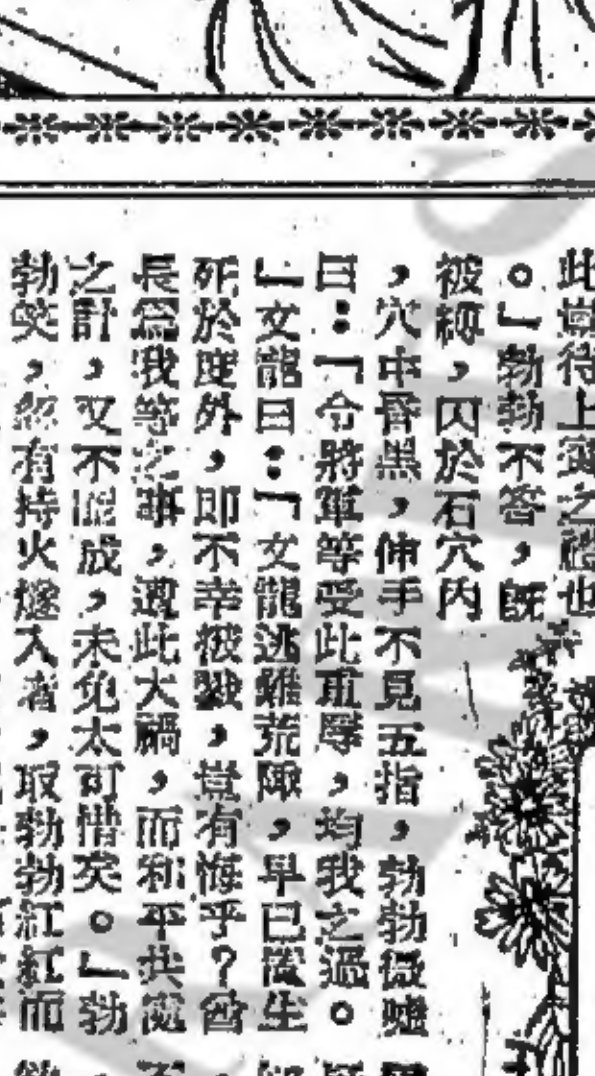 此豈待上賓之禮也
。」勃勃不答，既
被縛，囚於石穴內
，穴中昏黑，伸手不見五指，勃勃微嘘
曰：「令將軍等受此重辱，均我之過。
」文龍曰：「文龍逃難荒陬，早已置生
死於度外，即不幸被戮，豈有悔乎？酋
長爲我等之事，遭此大禍，而和平共處
之計，又不能成，未免太可惜矣。」勃
勃笑，忽有持火燧入者，取勃勃紅紅而